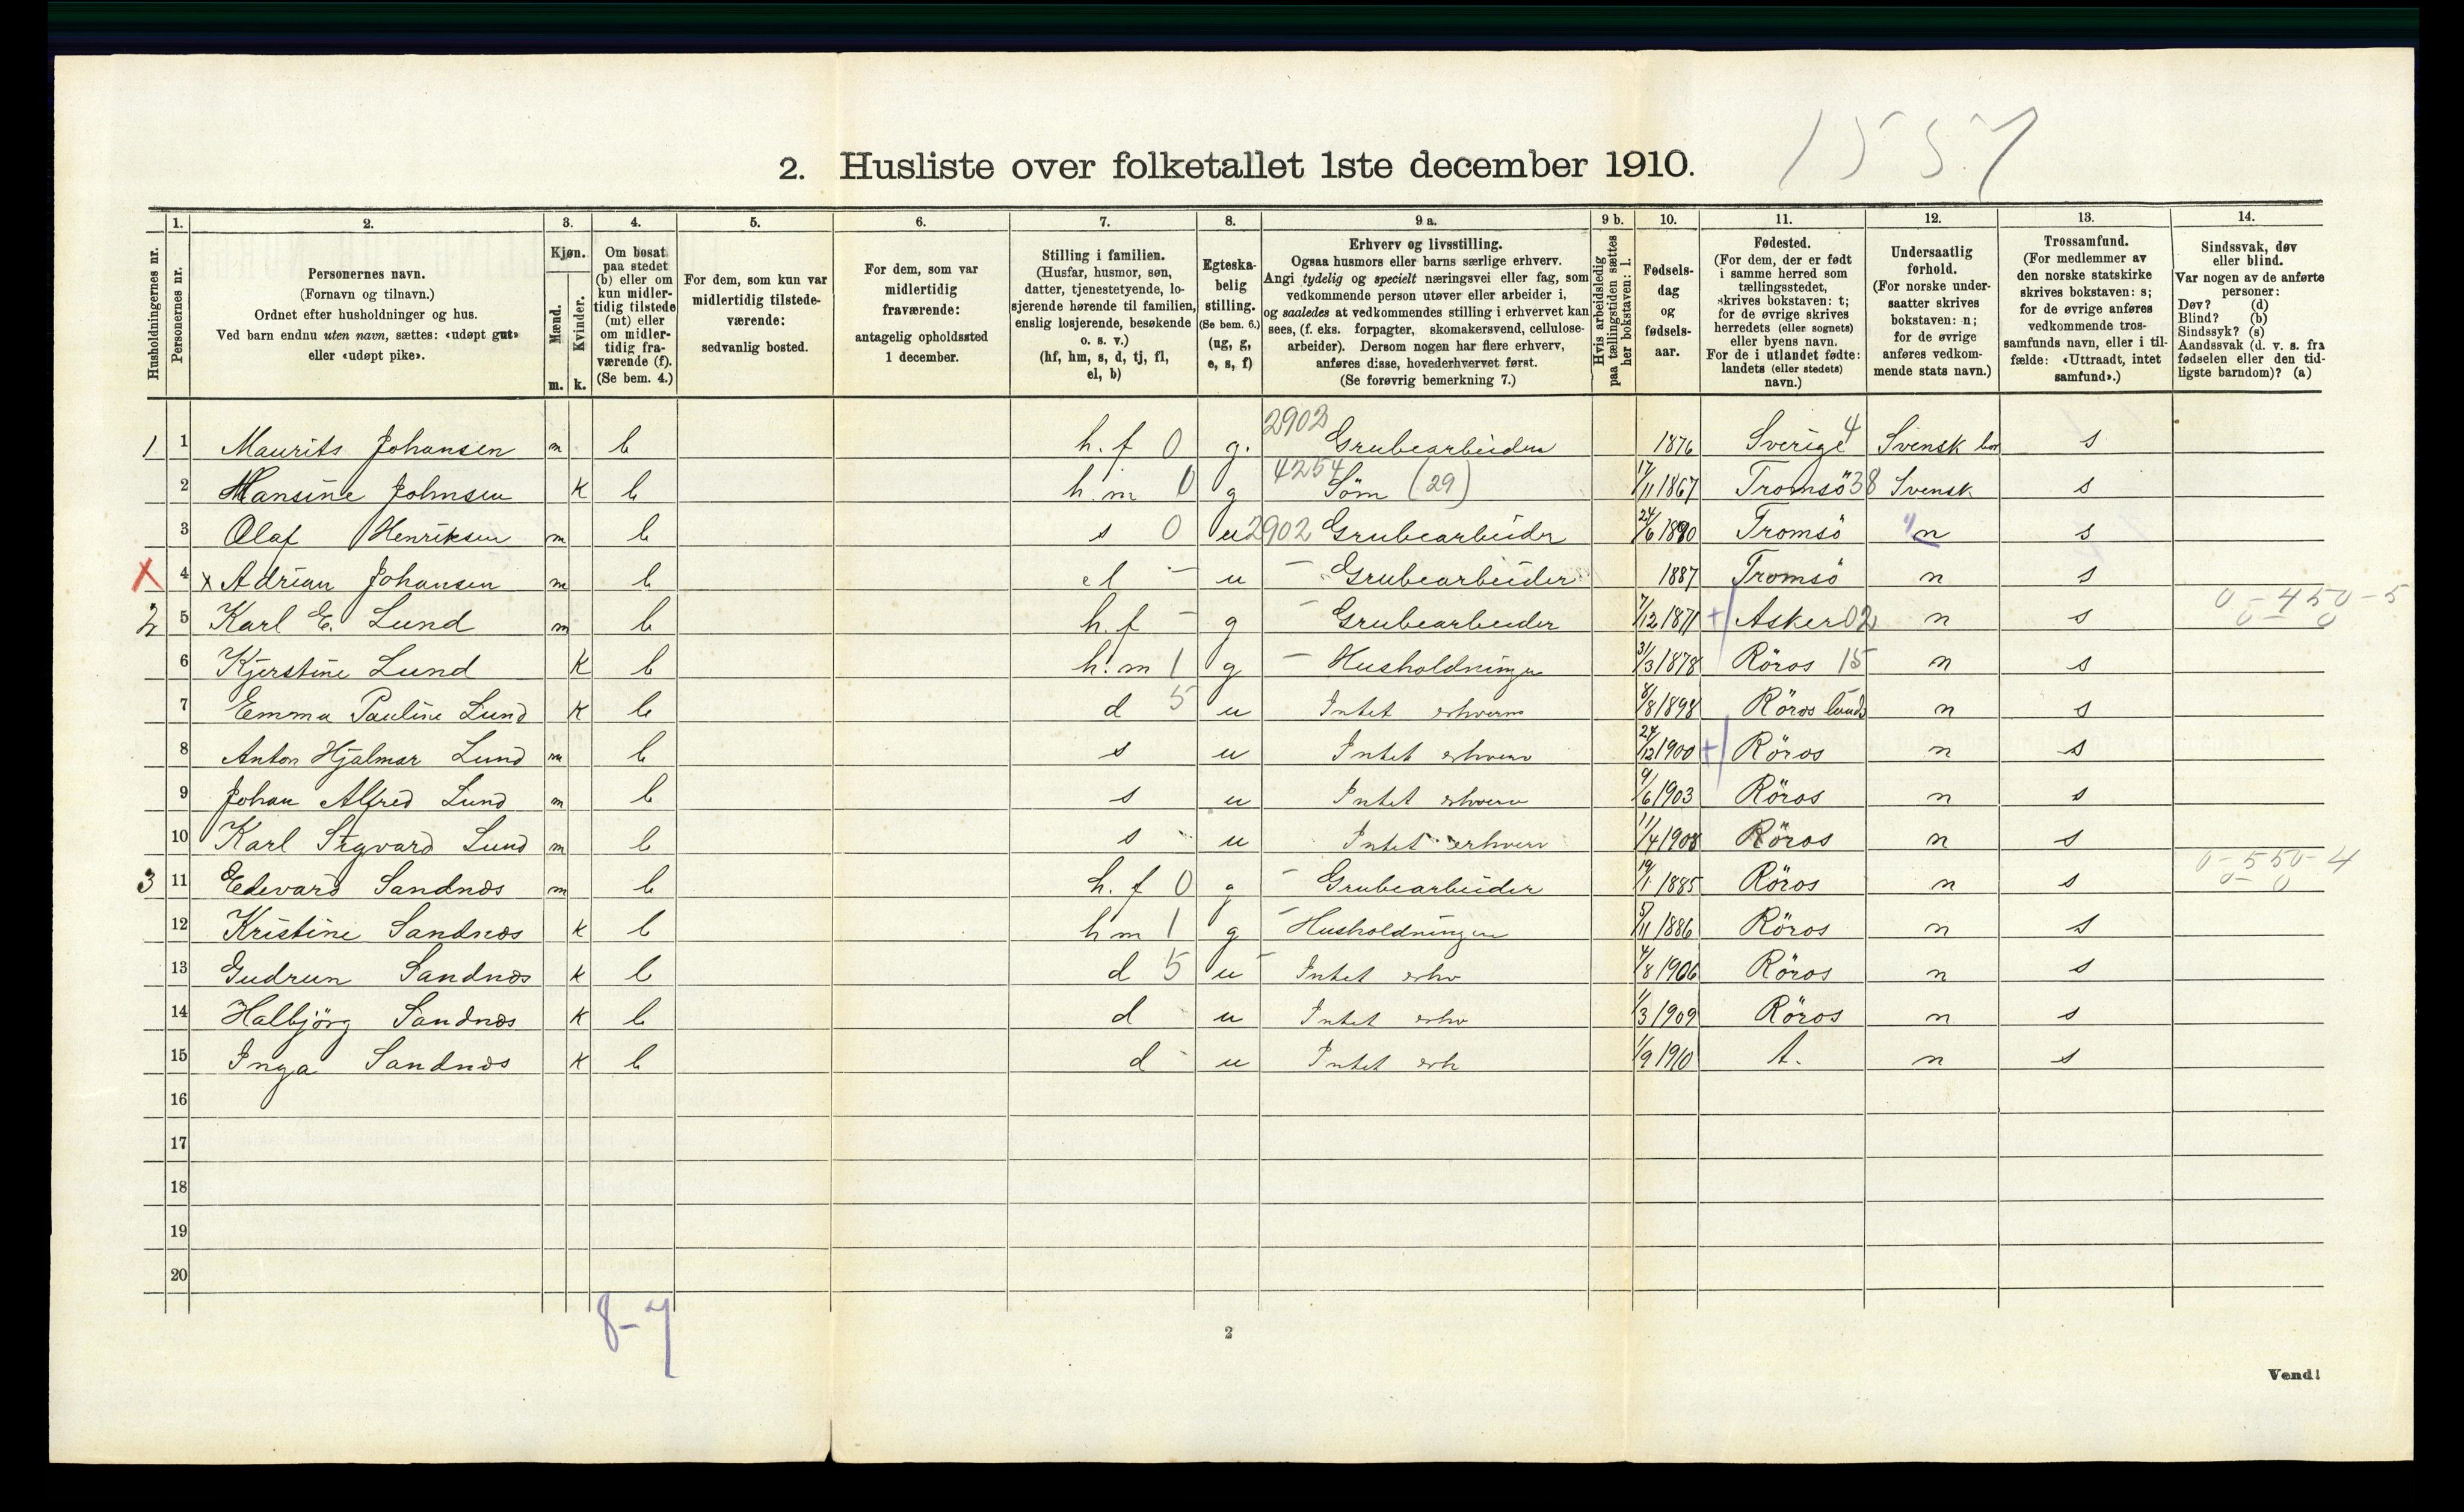 1557
2. Husliste over folketallet 1ste december 1910.
Husholdningernes nr.
1. Personernes nr.
2. Personernes navn. (Fornavn og tilnavn.) Ordnet efter husholdninger og hus. Ved barn endnu uten navn, sættes: «udøpt gut» eller «udøpt pike».
3. Kjøn. Mænd. m. Kvinder. k.
4. Om bosat paa stedet (b) eller om kun midlertidig tilstede (mt) eller om midlertidig fraværende (f). (Se bem. 4.)
5. For dem, som kun var midlertidig tilstedeværende: sedvanlig bosted.
6. For dem, som var midlertidig fraværende: antagelig opholdssted 1 december.
7. Stilling i familien. (Husfar, husmor, søn, datter, tjenestetyende, losjerende hørende til familien, enslig losjerende, besøkende o. s. v.) (hf, hm, s, d, tj, fl, el, b)
8. Egteskabelig stilling. (Se bem. 6.) (ug, g, e, s, f)
9 a. Erhverv og livsstilling. Ogsaa husmors eller barns særlige erhverv. Angi tydelig og specielt næringsvei eller fag, som vedkommende person utøver eller arbeider i, og saaledes at vedkommendes stilling i erhvervet kan sees, (f. eks. forpagter, skomakersvend, cellulosearbeider). Dersom nogen har flere erhverv, anføres disse, hovederhvervet først. (Se forøvrig bemerkning 7.)
9 b. Hvis arbeidsledig paa tællingstiden sættes her bokstaven: l.
10. Fødselsdag og fødselsaar.
11. Fødested. (For dem, der er født i samme herred som tællingsstedet, skrives bokstaven: t; for de øvrige skrives herredets (eller sognets) eller byens navn. For de i utlandet fødte: landets (eller stedets) navn.)
12. Undersaatlig forhold. (For norske undersaatter skrives bokstaven: n; for de øvrige anføres vedkommende stats navn.)
13. Trossamfund. (For medlemmer av den norske statskirke skrives bokstaven: s; for de øvrige anføres vedkommende trossamfunds navn, eller i tilfælde: «Uttraadt, intet samfund».)
14. Sindssvak, døv eller blind. Var nogen av de anførte personer: Døv? (d) Blind? (b) Sindssyk? (s) Aandssvak (d. v. s. fra fødselen eller den tidligste barndom)? (a)
1 1 Maurits Johansen m b h. f 0 g. 2902 Grubearbeider 1876 Sverige 4 Svensk s
2 Hansine Johnsen k b h. m 0 g 4254 Söm (29) 17/11 1867 Tromsö 38 Svensk s
3 Olaf Henriksen m b s 0 u 2902 Grubearbeider 24/6 1890 Tromsö n s
X 4 x Adrian Johansen m b el - u - Grubearbeider 1887 Tromsö n s
2 5 Karl E. Lund m b h. f - g - Grubearbeider 7/12 1871 + Asker 02 n s 0-450-5
6 Kjerstine Lund k b h. m 1 g - Husholdningen 31/3 1878 Röros 15 n s
7 Emma Pauline Lund k b d 5 u Intet erhverv 8/8 1898 Röros n s
8 Anton Hjalmar Lund m b s u Intet erhverv 24/12 1900 + Röros n s
9 Johan Alfred Lund m b s u Intet erhverv 9/6 1903 Röros n s
10 Karl Sigvard Lund m b s u Intet erhverv 11/4 1908 Röros n s
3 11 Edevard Sandnæs m b h. f 0 g - Grubearbeider 19/1 1885 Röros n s 0-550-4
12 Kristine Sandnæs k b h m 1 g - Husholdningen 5/11 1886 Röros n s
13 Gudrun Sandnæs k b d 5 u - Intet erhv 4/8 1906 Röros n s
14 Halbjörg Sandnæs k b d u Intet erhv 1/3 1909 Röros n s
15 Inga Sandnæs k b d u Intet erh 1/9 1910 t. n s
16
17
18
19
20
8-7
2
Vend!